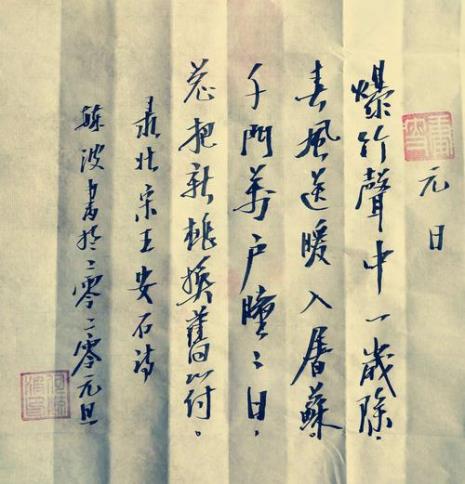 元日
爆竹聲中一歲除，
春風送暖入屠蘇。
千門萬户曈〻日，
总把新桃換舊符。
录北宋王安石诗
波书於二零二零元旦